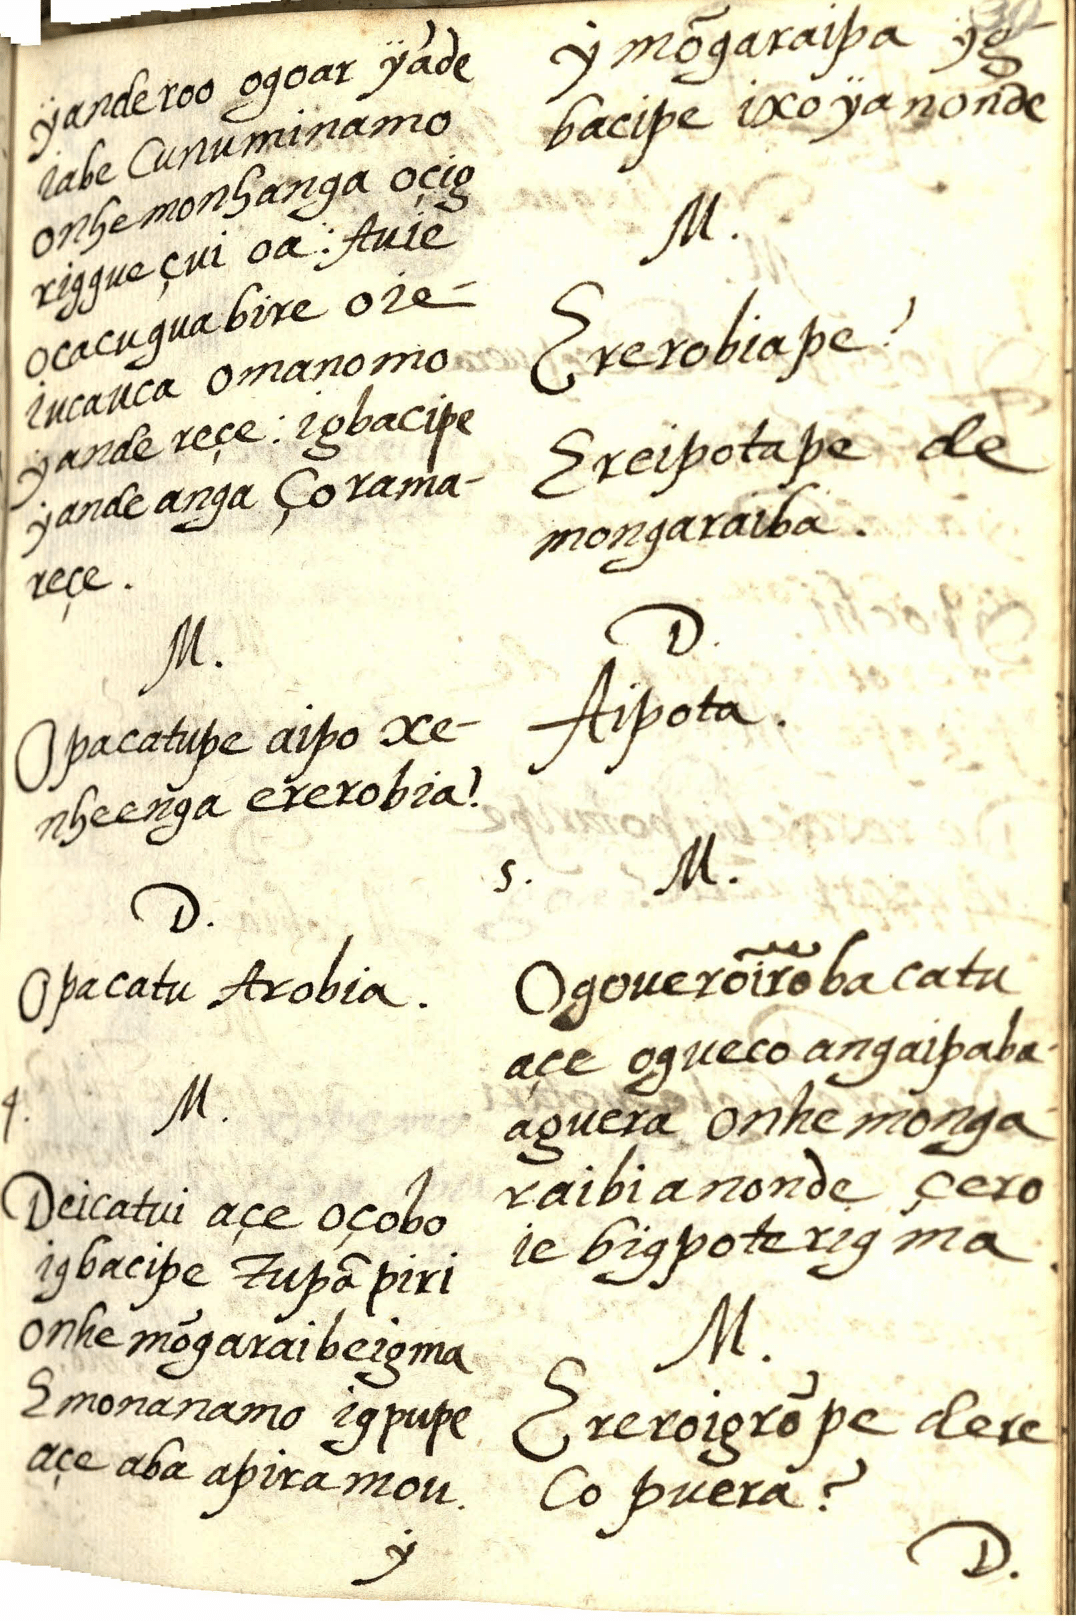 ÿande roo ogoar ÿãde
iabe Cunuminamo
onhemonhanga oçig
riggue çui oa: Auiê
ocacuguabire oie-
iucauca omanomo
ÿande reçe: igbacipe
ÿande anga Çorama-
reçe.
M.
Opacatupe aipo xe-
nheenga ererobia?
D.
Opacatu Arobia.
4. M.
Deicatui açe oçobo
igbacipe Tupã piri
onhe mõgaraibeigma
Emonanamo igpupe
açe aba apiramou.
ÿ
ÿ mõgaraipa ÿg
bacipe ixo ÿanonde
M.
Ererobiape?
Ereipotape de
mongaraiba.
D.
Aipota.
5. M.
Ogouerõirõbacatu
açe ogueco angaipaba-
aguera onhemonga-
raibianonde çero
ie bigpoterigma.
M.
Ereroigrõpe dere
Co puera?
D.